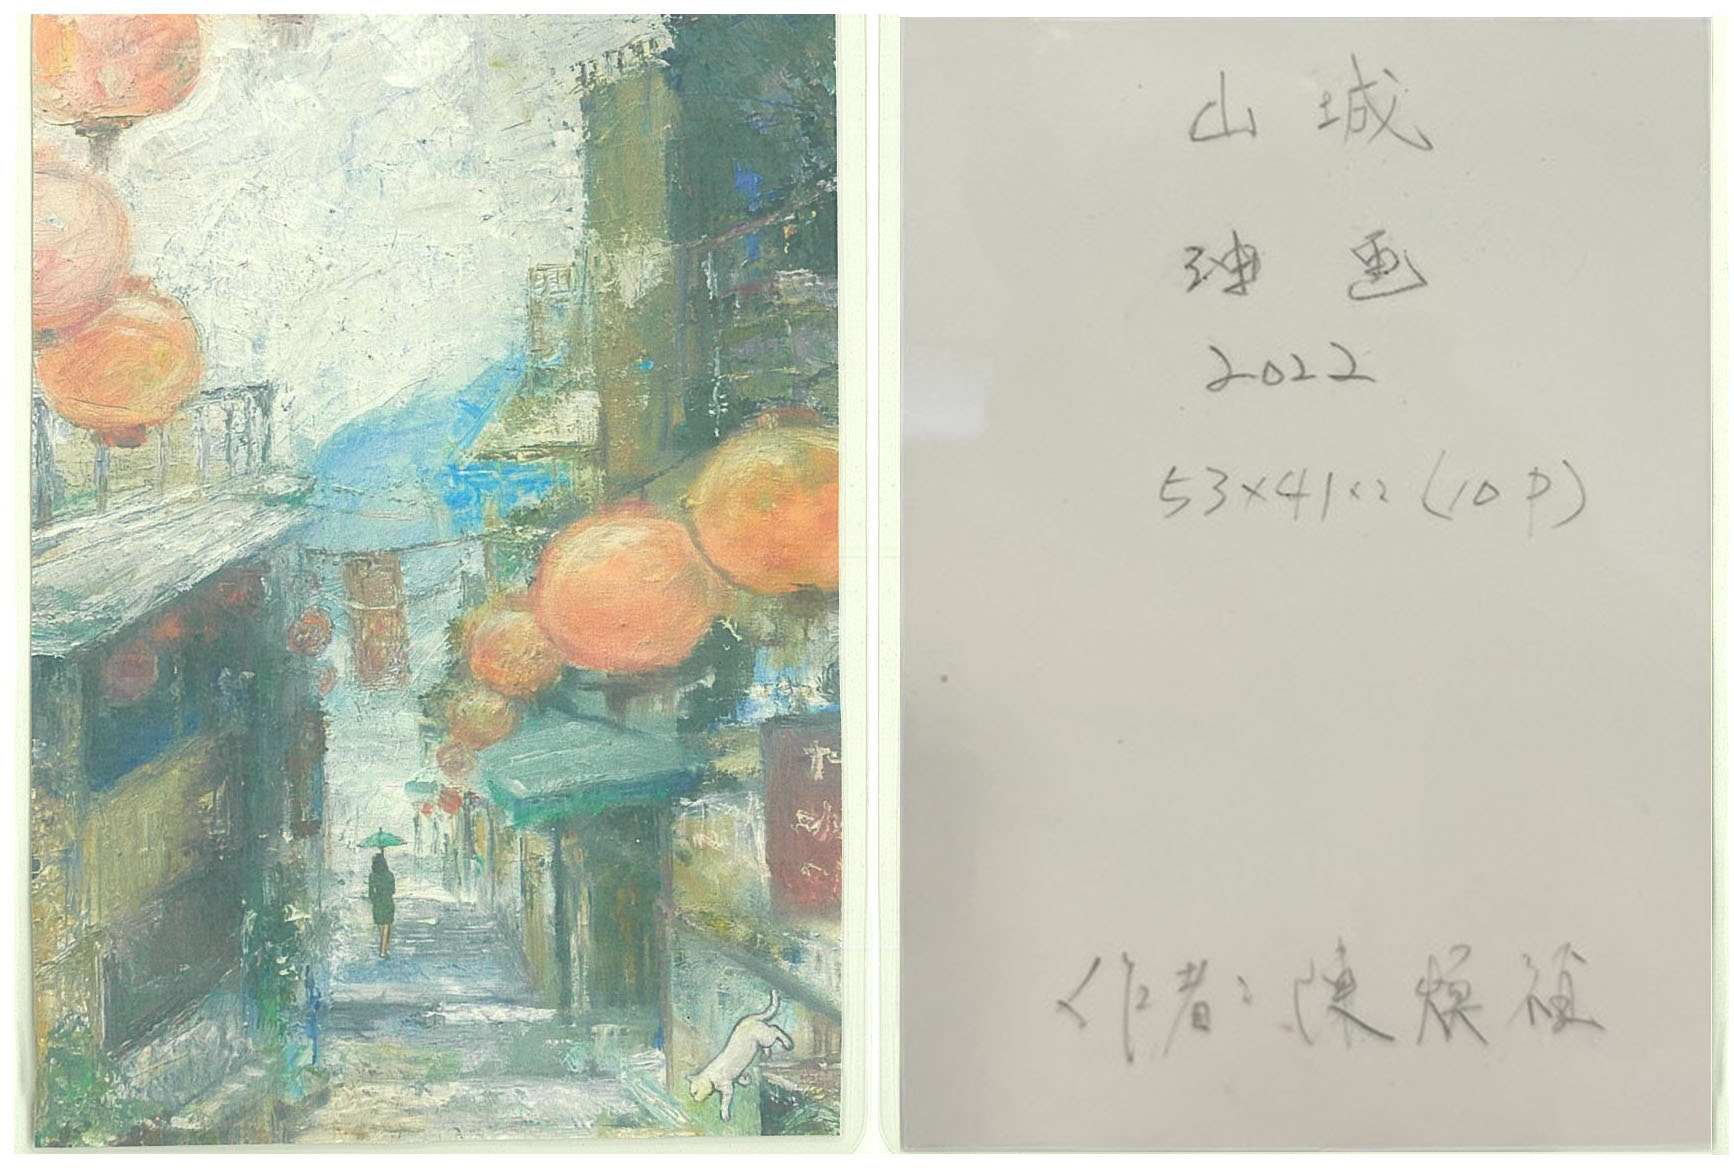 山城
油画
2022
53×41cm (10P)
作者：陳煥禎